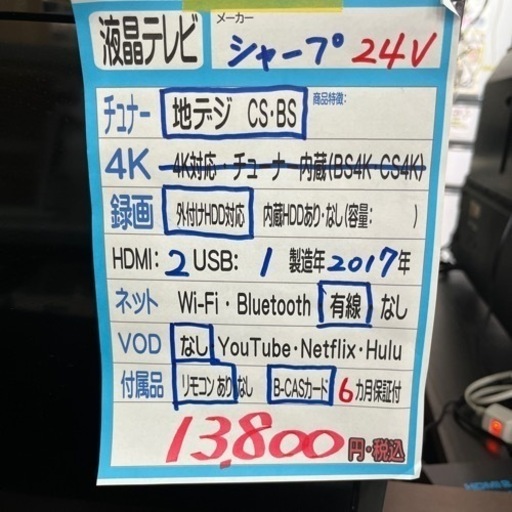 液晶テレビ
メーカー
シャープ 24V
チュナー 地デジ CS・BS 商品特徴:
4K 4K対応・チューナー内蔵(BS4K CS4K)
録画 外付けHDD対応 内蔵HDDあり・なし(容量: )
HDMI: 2 USB: 1 製造年2017年
ネット Wi-Fi・Bluetooth 有線 なし
VOD なし YouTube・Netflix・Hulu
付属品 リモコン あり なし B-CASカード 6カ月保証付
13,800円・税込
HDMI